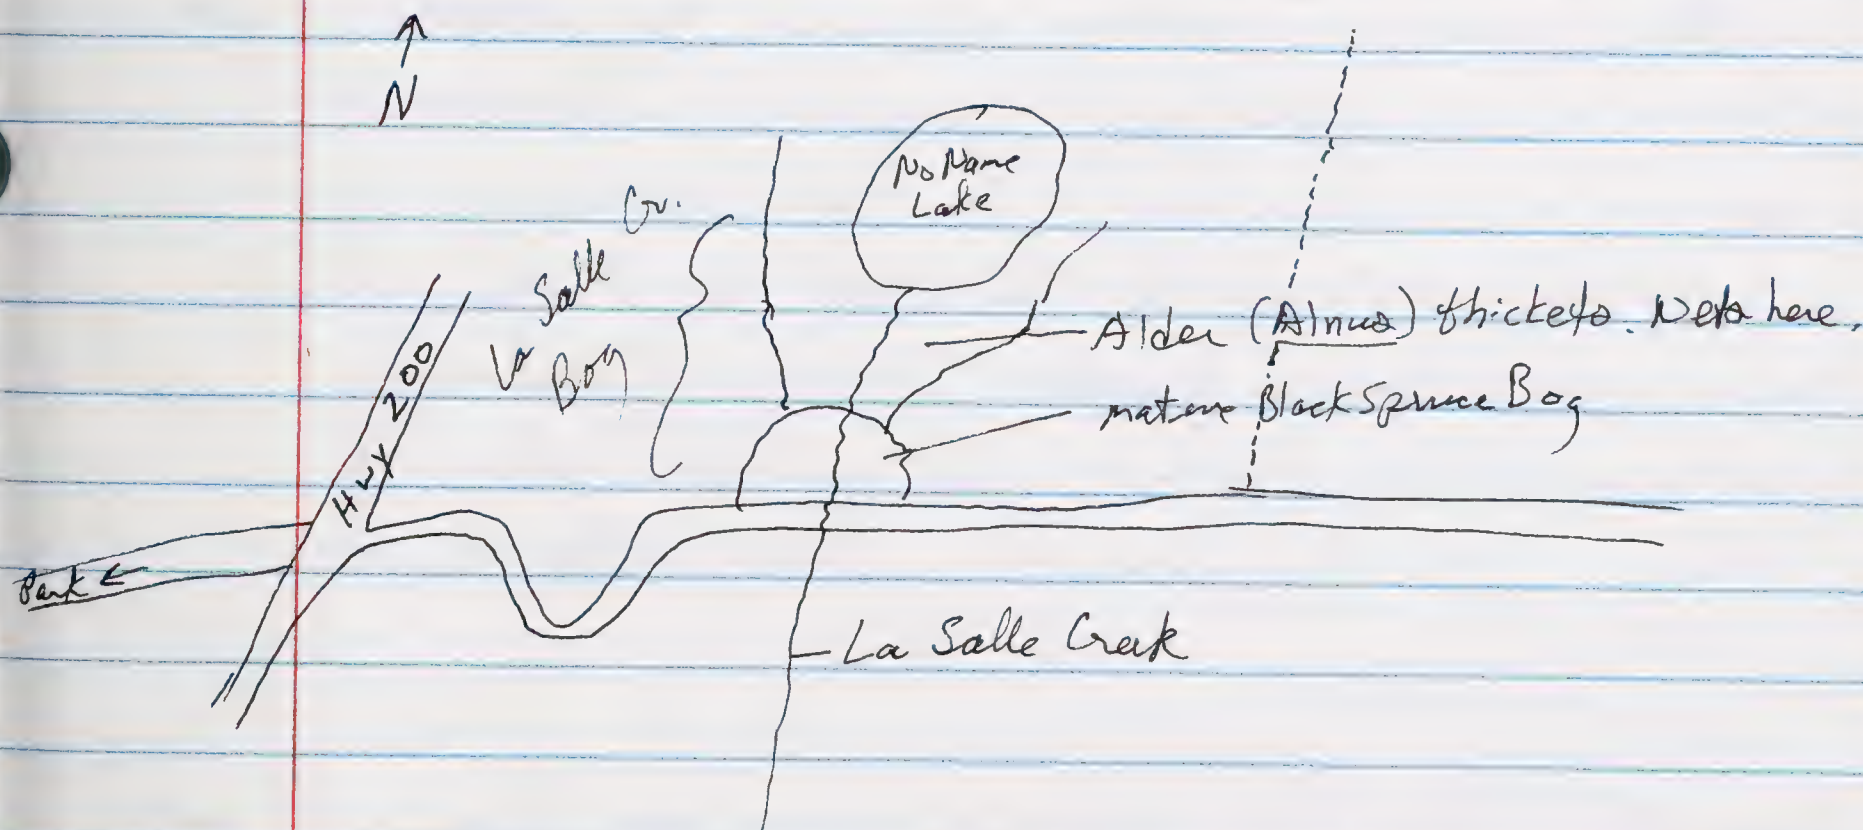 N
No Name
Lake
La Salle Cr.
Bog
Hwy 200
Alder (Alnus) thickets. Nets here.
mature Black Spruce Bog
Park ←
La Salle Creek